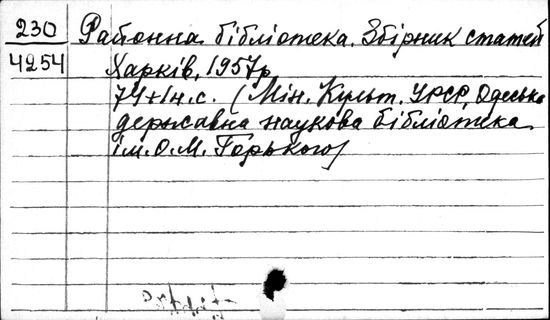 230 Районна бібліотека. Збірник статей
4254 Харків, 1957р.
74+1н.с. (Мін. Культ. УРСР, Одеська
державна наукова бібліотека
ім. О.М. Горького)